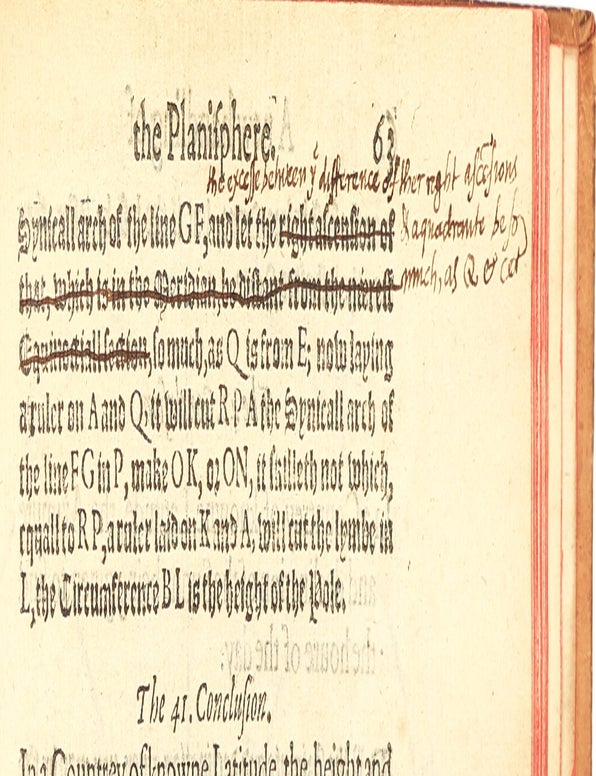 the Planisphere. 63
the excesse between yͤ difference of ther right ascēsions
Synicall arch of the line GF, and let the right ascension of & a quadrante be so
that, which is in the Meridian, be distant from the nierest much, as Q &
Equinoctiall section, so much, as Q is from E, now laying
a ruler on A and Q, it will cut R P A the Synicall arch of
the line FG in P, make OK, or ON, it skilleth not which,
equall to R P, a ruler laid on K and A, will cut the lymbe in
L, the Circumference B L is the height of the Pole.
the houre of the day:
The 41. Conclusion.
In a Countrey of knowne Latitude, the height and